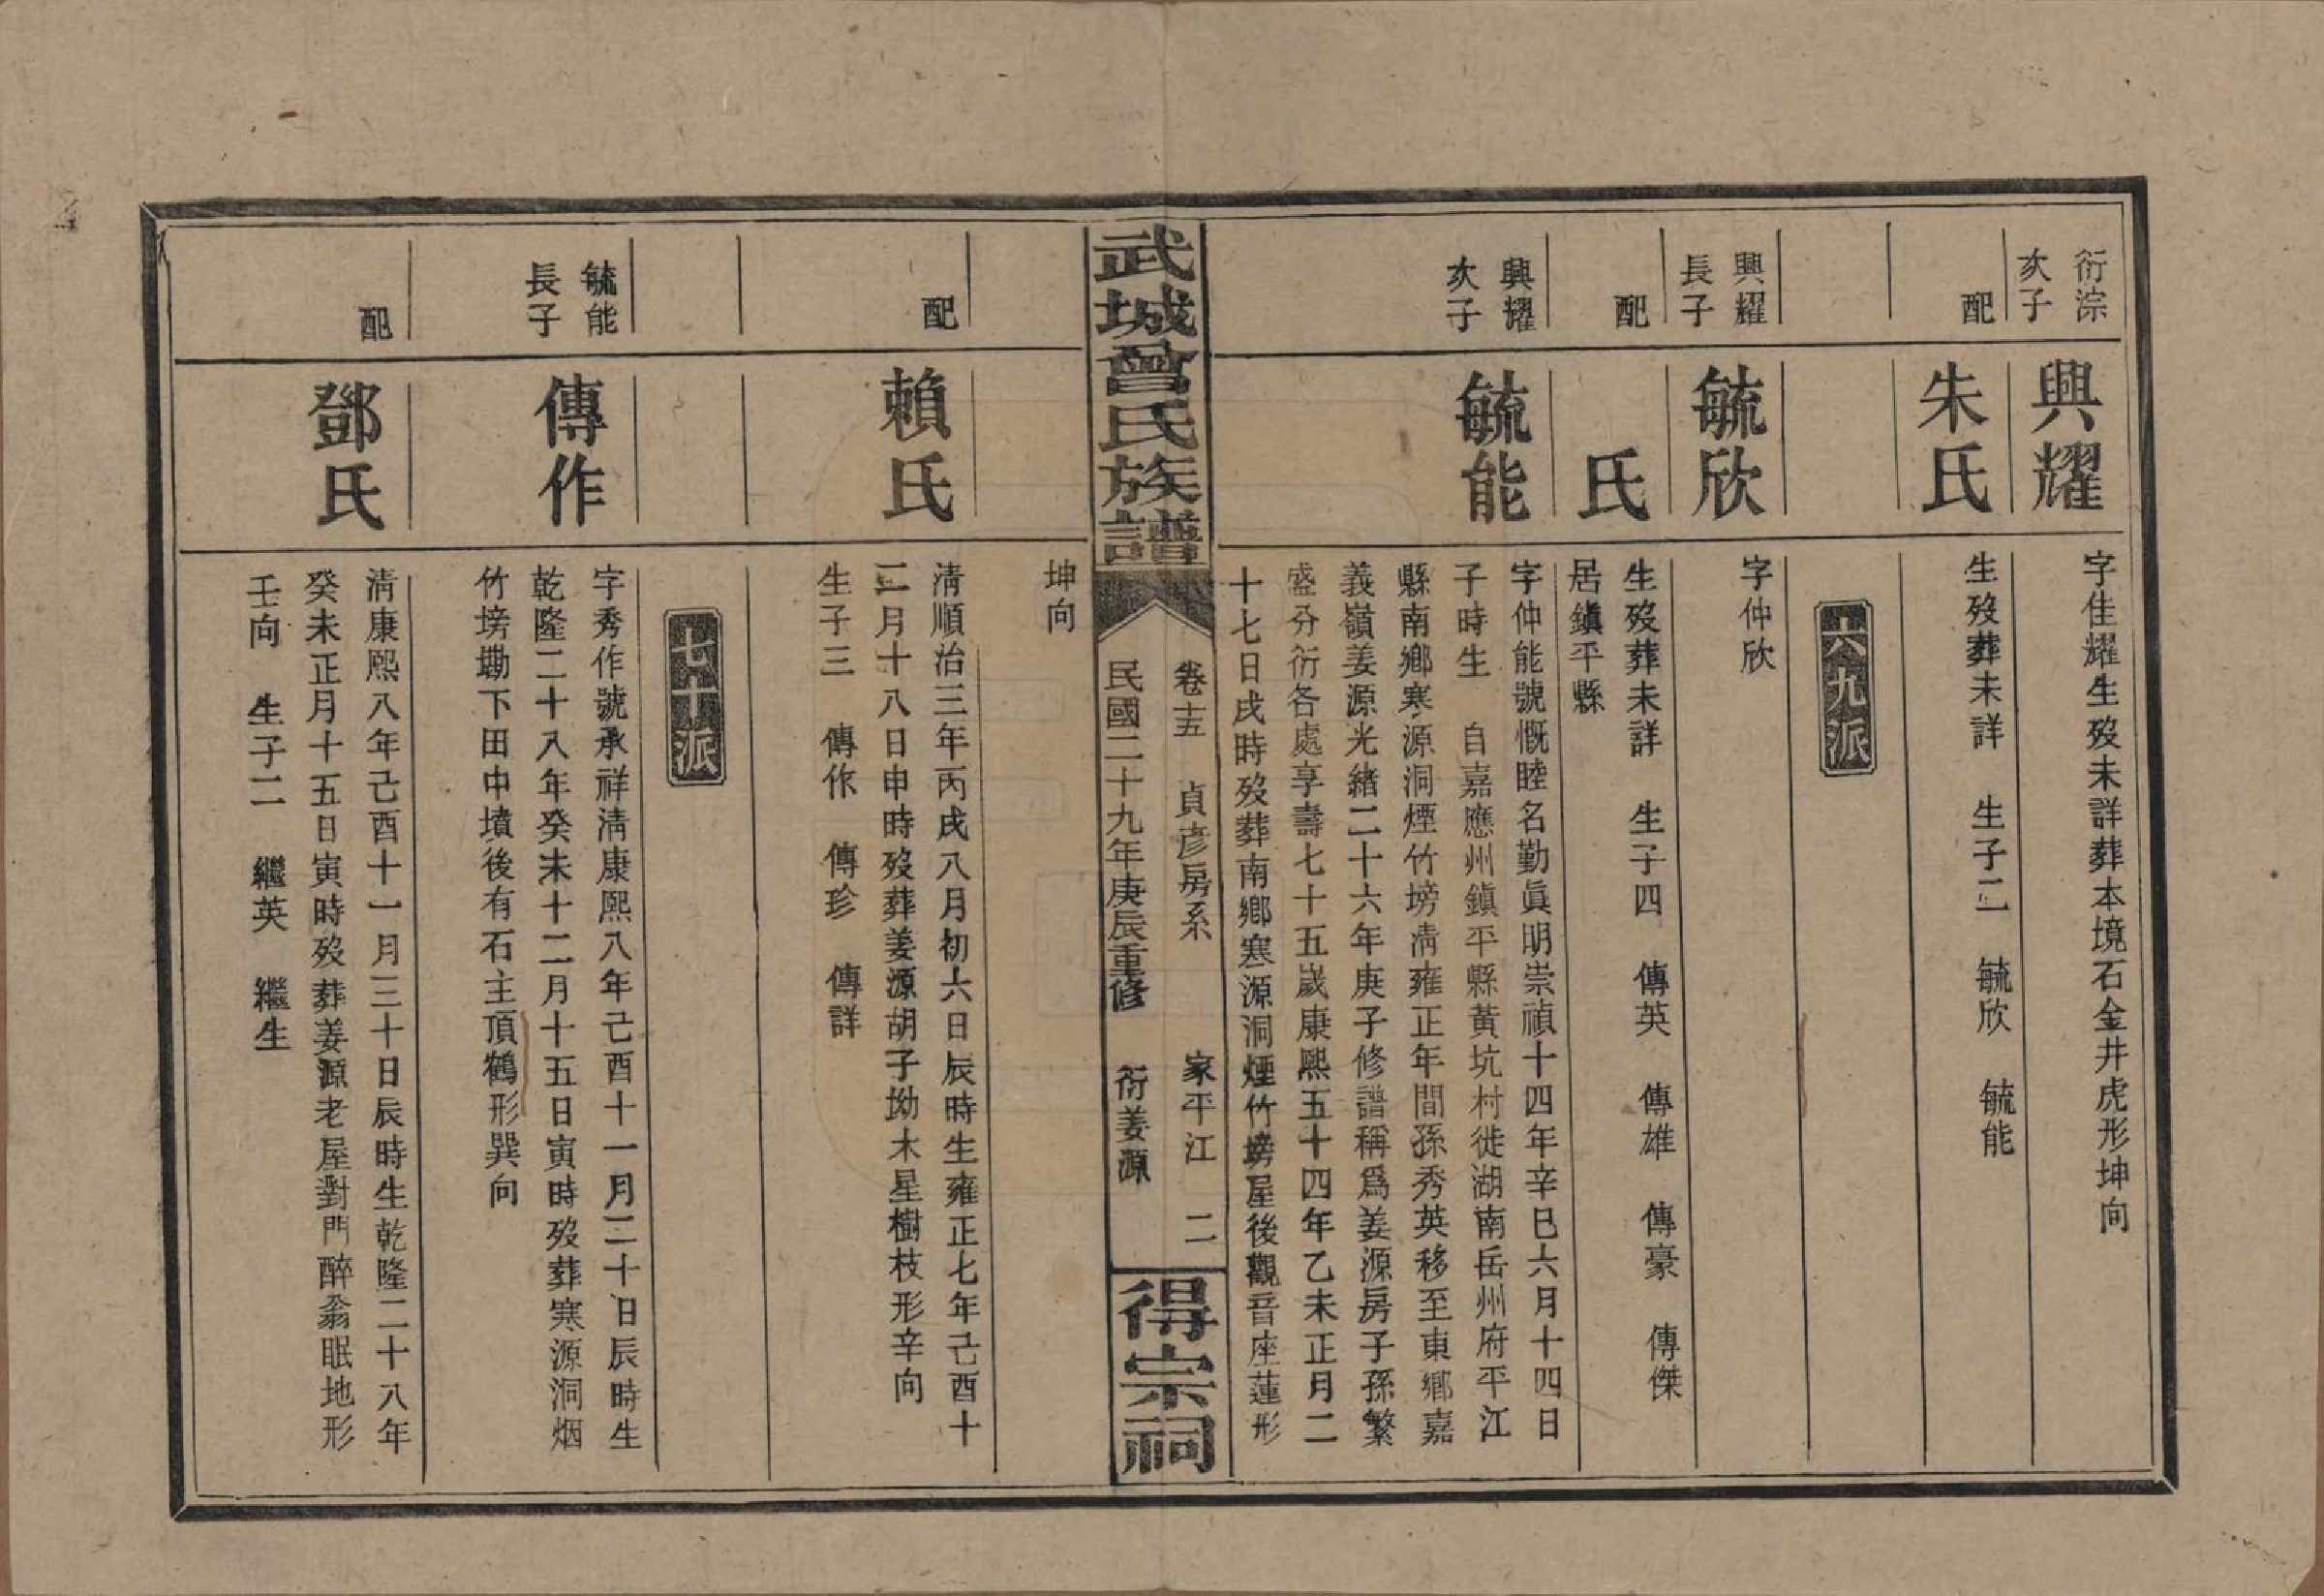 衍淙
次子
興耀
字佳耀生歿未詳葬本境石金井虎形坤向
配
朱氏
生歿葬未詳 生子二 毓欣 毓能
六九派
興耀
長子
毓欣
字仲欣
配
氏
生歿葬未詳 生子四 傳英 傳雄 傳豪 傳傑
居鎮平縣
興耀
次子
毓能
字仲能號慨睦名勤眞明崇禎十四年辛巳六月十四日
子時生 自嘉應州鎮平縣黃坑村徙湖南岳州府平江
縣南鄉寒源洞煙竹塝淸雍正年間孫秀英移至東鄉嘉
義嶺姜源光緒二十六年庚子修譜稱爲姜源房子孫繁
盛分衍各處享壽七十五歲康熙五十四年乙未正月二
十七日戌時歿葬南鄉寒源洞煙竹塝屋後觀音座蓮形
武城曾氏族譜
卷十五 貞彦房系 家平江 二
民國二十九年庚辰重修 衍姜源
得宗祠
坤向
配
賴氏
淸順治三年丙戌八月初六日辰時生雍正七年己酉十
二月十八日申時歿葬姜源胡子坳木星樹枝形辛向
生子三 傳作 傳珍 傳詳
七十派
毓能
長子
傳作
字秀作號承祥淸康熙八年己酉十一月三十日辰時生
乾隆二十八年癸未十二月十五日寅時歿葬寒源洞烟
竹塝墈下田中墳後有石主頂鶴形巽向
配
鄧氏
淸康熙八年己酉十一月三十日辰時生乾隆二十八年
癸未正月十五日寅時歿葬姜源老屋對門醉翁眠地形
壬向 生子二 繼英 繼生